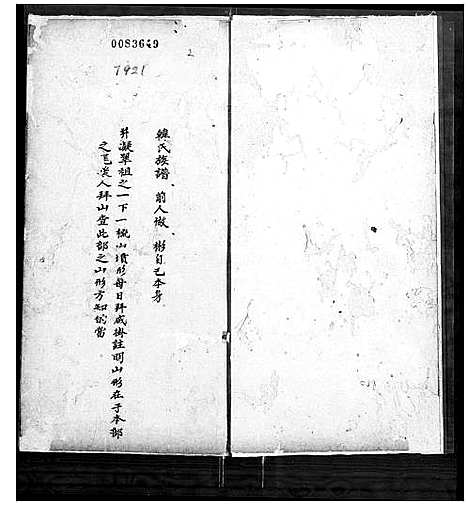 0083649
2
1921
氏族譜 前人做 彬自己本身
并凝翠祖之一下一概山墳形每日拜成掛註明山形在于本部
之毛炭人拜山查此部之山形方知的當